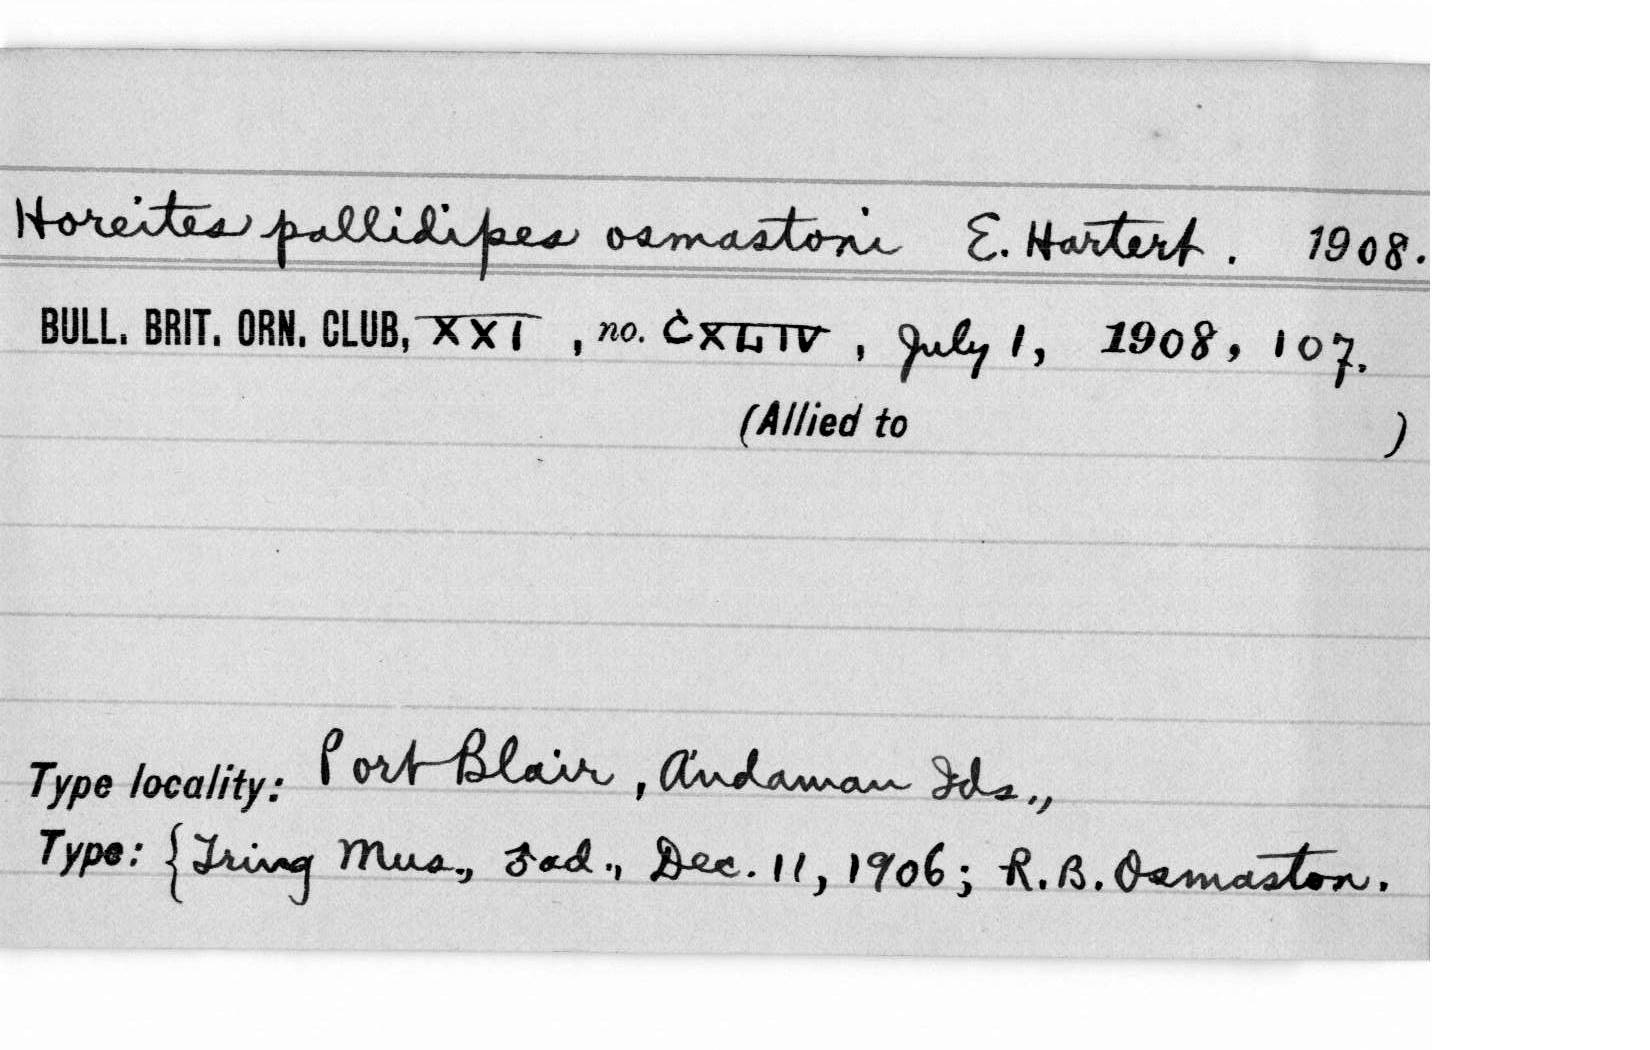 Horeites pallidipes osmastoni E. Hartert. 1908.
BULL. BRIT. ORN. CLUB, XXI, no. CXLIV, July 1, 1908, 107.
(Allied to )
Type locality: Port Blair, Andaman Ids.,
Type: {Tring Mus., ad., Dec. 11, 1906; R. B. Osmaston.